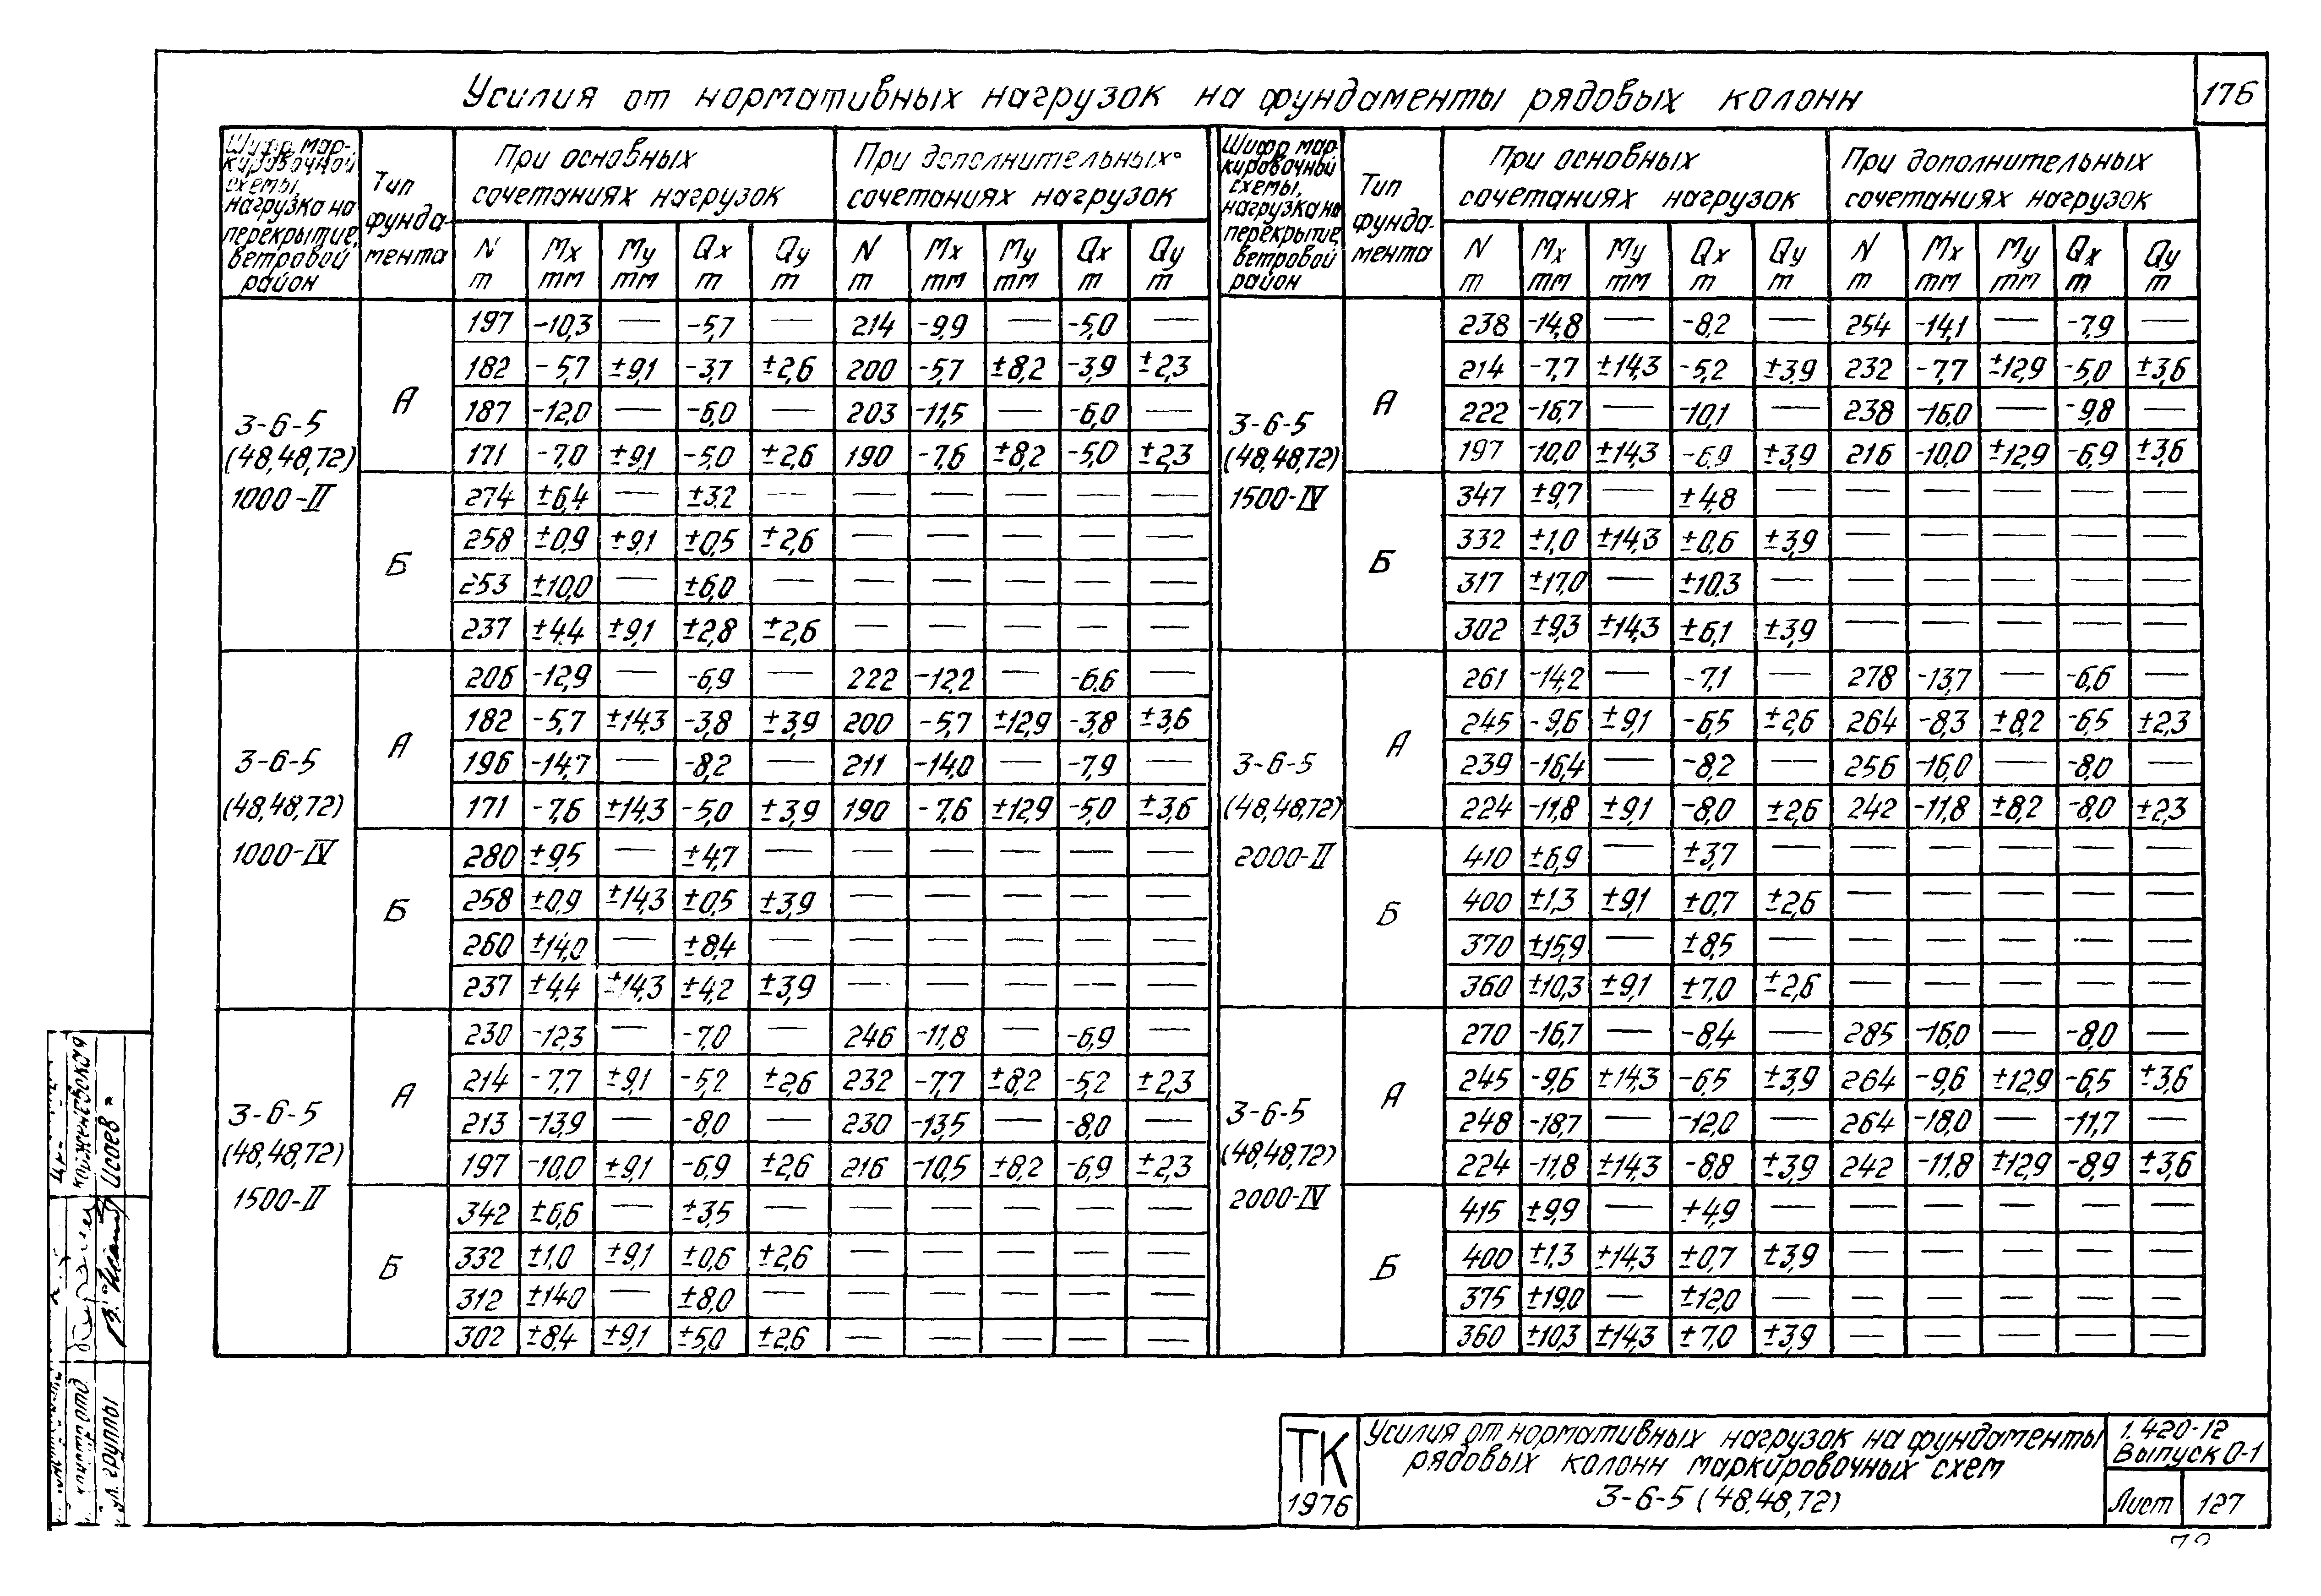 176
Усилия от нормативных нагрузок на фундаменты рядовых колонн
Шифр мар-
кировочной
схемы,
нагрузка на
перекрытие,
ветровой
район
Тип
фунда-
мента
При основных
сочетаниях нагрузок
При дополнительных
сочетаниях нагрузок
N т Mx тм My тм Qx т Qy т N т Mx тм My тм Qx т Qy т
3-6-5
(48,48,72)
1000-II
А
197 -10,3 — -5,7 — 214 -9,9 — -5,0 —
182 -5,7 ±9,1 -3,7 ±2,6 200 -5,7 ±8,2 -3,9 ±2,3
187 -12,0 — -6,0 — 203 -11,5 — -6,0 —
171 -7,0 ±9,1 -5,0 ±2,6 190 -7,6 ±8,2 -5,0 ±2,3
Б
274 ±6,4 — ±3,2 — — — — — —
258 ±0,9 ±9,1 ±0,5 ±2,6 — — — — —
253 ±10,0 — ±6,0 — — — — — —
237 ±4,4 ±9,1 ±2,8 ±2,6 — — — — —
3-6-5
(48,48,72)
1000-IV
А
206 -12,9 — -6,9 — 222 -12,2 — -6,6 —
182 -5,7 ±14,3 -3,8 ±3,9 200 -5,7 ±12,9 -3,8 ±3,6
196 -14,7 — -8,2 — 211 -14,0 — -7,9 —
171 -7,6 ±14,3 -5,0 ±3,9 190 -7,6 ±12,9 -5,0 ±3,6
Б
280 ±9,5 — ±4,7 — — — — — —
258 ±0,9 ±14,3 ±0,5 ±3,9 — — — — —
260 ±14,0 — ±8,4 — — — — — —
237 ±4,4 ±14,3 ±4,2 ±3,9 — — — — —
3-6-5
(48,48,72)
1500-II
А
230 -12,3 — -7,0 — 246 -11,8 — -6,9 —
214 -7,7 ±9,1 -5,2 ±2,6 232 -7,7 ±8,2 -5,2 ±2,3
213 -13,9 — -8,0 — 230 -13,5 — -8,0 —
197 -10,0 ±9,1 -6,9 ±2,6 216 -10,5 ±8,2 -6,9 ±2,3
Б
342 ±6,6 — ±3,5 — — — — — —
332 ±1,0 ±9,1 ±0,6 ±2,6 — — — — —
312 ±14,0 — ±8,0 — — — — — —
302 ±8,4 ±9,1 ±5,0 ±2,6 — — — — —
Шифр мар-
кировочной
схемы,
нагрузка на
перекрытие,
ветровой
район
Тип
фунда-
мента
При основных
сочетаниях нагрузок
При дополнительных
сочетаниях нагрузок
N т Mx тм My тм Qx т Qy т N т Mx тм My тм Qx т Qy т
3-6-5
(48,48,72)
1500-IV
А
238 -14,8 — -8,2 — 254 -14,1 — -7,9 —
214 -7,7 ±14,3 -5,2 ±3,9 232 -7,7 ±12,9 -5,0 ±3,6
222 -16,7 — -10,1 — 238 -16,0 — -9,8 —
197 -10,0 ±14,3 -6,9 ±3,9 216 -10,0 ±12,9 -6,9 ±3,6
Б
347 ±9,7 — ±4,8 — — — — — —
332 ±1,0 ±14,3 ±0,6 ±3,9 — — — — —
317 ±17,0 — ±10,3 — — — — — —
302 ±9,3 ±14,3 ±6,1 ±3,9 — — — — —
3-6-5
(48,48,72)
2000-II
А
261 -14,2 — -7,1 — 278 -13,7 — -6,6 —
245 -9,6 ±9,1 -6,5 ±2,6 264 -8,3 ±8,2 -6,5 ±2,3
239 -16,4 — -8,2 — 256 -16,0 — -8,0 —
224 -11,8 ±9,1 -8,0 ±2,6 242 -11,8 ±8,2 -8,0 ±2,3
Б
410 ±6,9 — ±3,7 — — — — — —
400 ±1,3 ±9,1 ±0,7 ±2,6 — — — — —
370 ±15,9 — ±8,5 — — — — — —
360 ±10,3 ±9,1 ±7,0 ±2,6 — — — — —
3-6-5
(48,48,72)
2000-IV
А
270 -16,7 — -8,4 — 285 -16,0 — -8,0 —
245 -9,6 ±14,3 -6,5 ±3,9 264 -9,6 ±12,9 -6,5 ±3,6
248 -18,7 — -12,0 — 264 -18,0 — -11,7 —
224 -11,8 ±14,3 -8,8 ±3,9 242 -11,8 ±12,9 -8,9 ±3,6
Б
415 ±9,9 — ±4,9 — — — — — —
400 ±1,3 ±14,3 ±0,7 ±3,9 — — — — —
375 ±19,0 — ±12,0 — — — — — —
360 ±10,3 ±14,3 ±7,0 ±3,9 — — — — —
Исаев
группы
ТК
1976
Усилия от нормативных нагрузок на фундаменты
рядовых колонн маркировочных схем
3-6-5 (48,48,72)
1.420-12
Выпуск 0-1
Лист 127